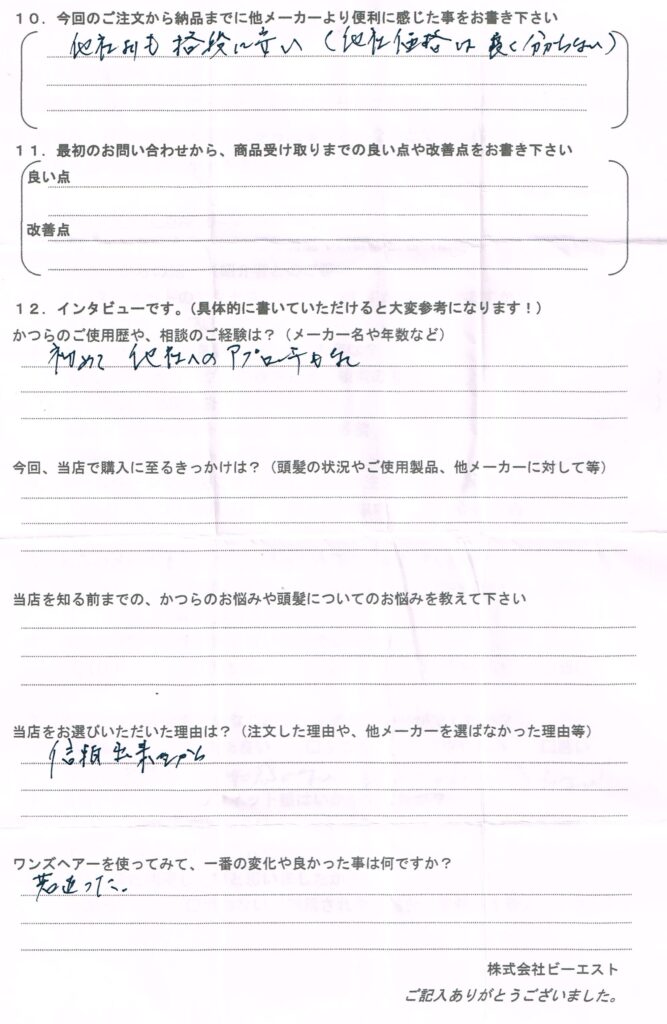 １０．今回のご注文から納品までに他メーカーより便利に感じた事をお書き下さい
他社よりも格段に安い（他社価格は良く分らない）
１１．最初のお問い合わせから、商品受け取りまでの良い点や改善点をお書き下さい
良い点
改善点
１２．インタビューです。（具体的に書いていただけると大変参考になります！）
かつらのご使用歴や、相談のご経験は？（メーカー名や年数など）
初めて 他社へのアプローチもなし
今回、当店で購入に至るきっかけは？（頭髪の状況やご使用製品、他メーカーに対して等）
当店を知る前までの、かつらのお悩みや頭髪についてのお悩みを教えて下さい
当店をお選びいただいた理由は？（注文した理由や、他メーカーを選ばなかった理由等）
信頼出来たから
ワンズヘアーを使ってみて、一番の変化や良かった事は何ですか？
若返った。
株式会社ビーエスト
ご記入ありがとうございました。